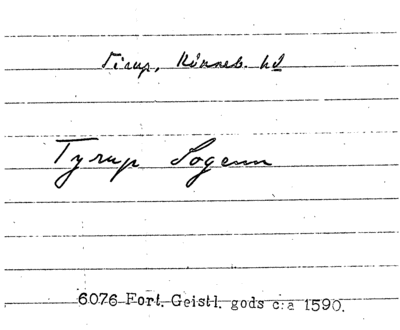 Tirup, Rönneb. hd
Tyrup Sogenn
6076 Fort. Geistl. gods c:a 1590.